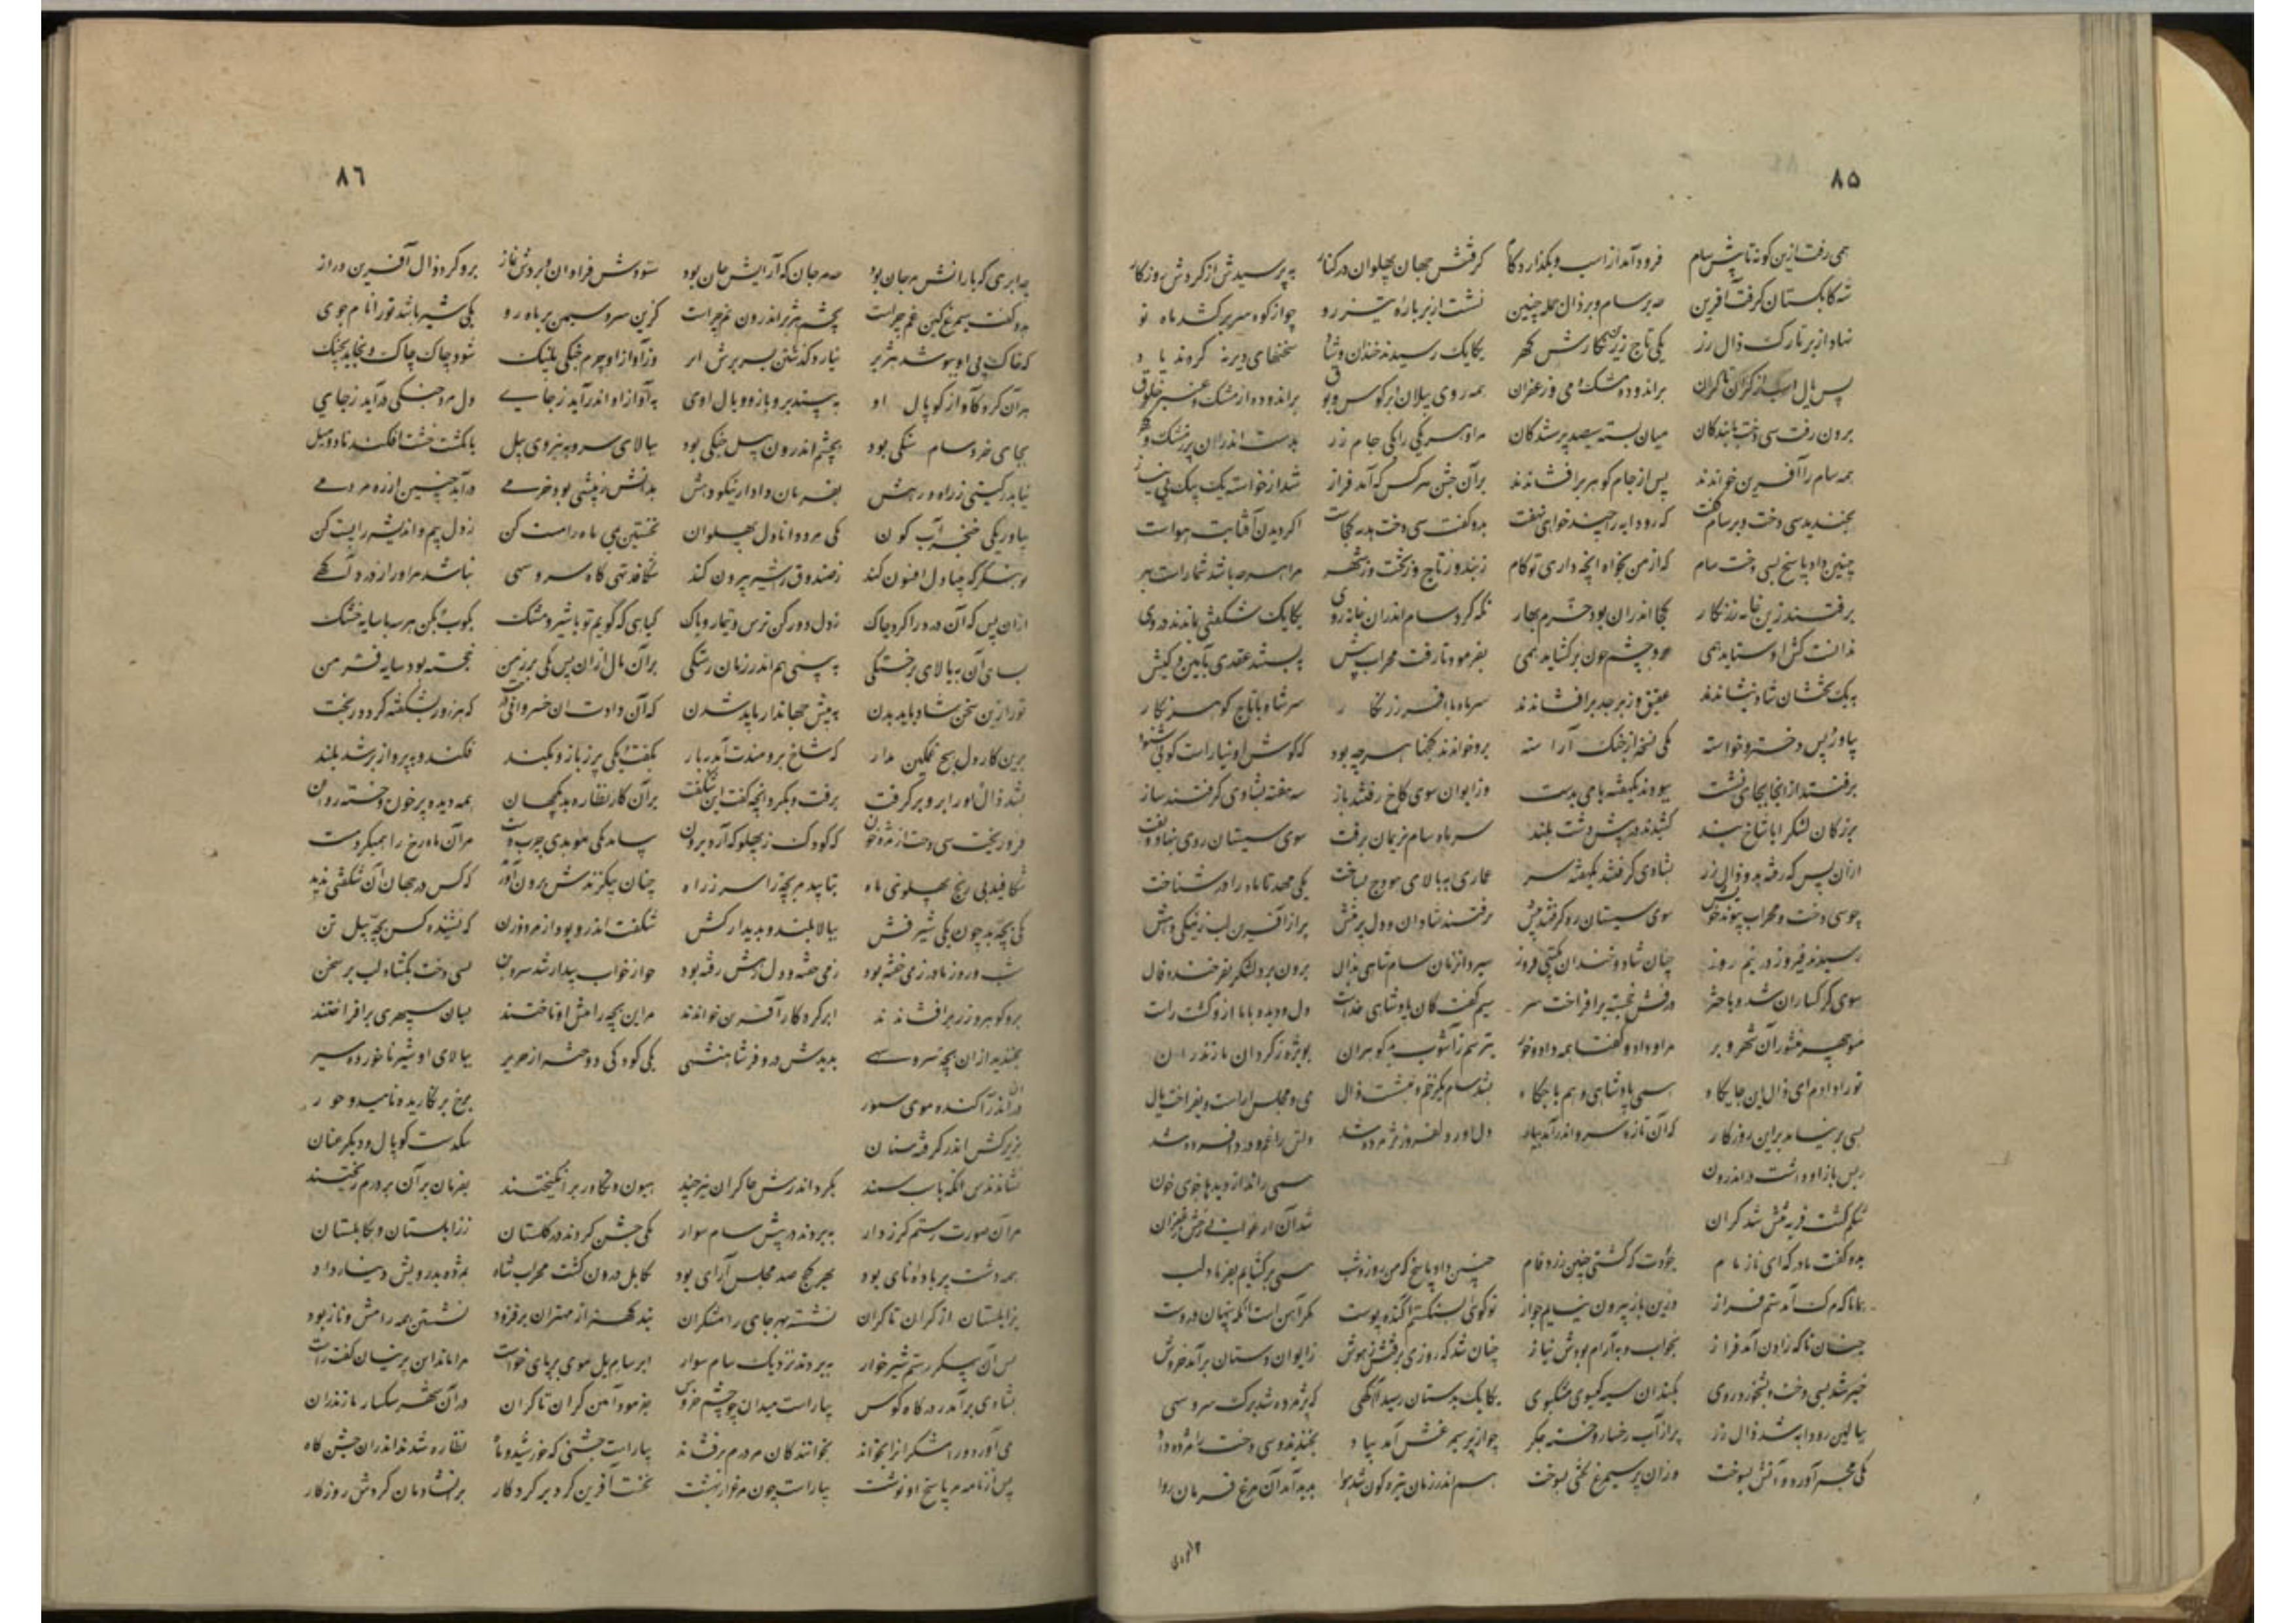 ۸۵
همی رفت ازین گونه تا پیش سام فرود آمد از اسب و بگذارد گام گرفتش جهان پهلوان در کنار بپرسیدش از گردش روزگار
شه کابلستان گرفت آفرین چه بر سام و بر ذال همچنین نشست از بر باره تیز رو چو از کوه سر برکشد ماه نو
نهاد از بر تارک ذال زر یکی تاج زرین نگارش گهر یکایک رسیدند خندان و شاد سخنهای دیرنه کردند یاد
برون رفت سی دخت با بندگان میان بسته سیصد پرستندگان مر او هر یکی را یکی جام زر بدست اندران پر ز مشک و گهر
همه سام را آفرین خواندند پس از جام گوهر برافشاندند بر آن جشن هر کس که آمد فراز شد از خواسته یک بیک بی نیاز
بخندید سی دخت و بر سام گفت که رودابه را چند خواهی نهفت بدو گفت سی دخت هدیه کجاست اگر دیدن آفتابت هواست
چنین داد پاسخ بسی دخت سام که از من بخواه آنچه داری تو کام
برفتند زین خانه زرنگار کجا اندران بود خرم بهار نگه کرد سام اندران خانه روی یکایک شگفتی بماند در روی
ندانست کش او ستاید همی برو چشم چون برگشاید همی بفرمود تا رفت مهراب پیش ببستند عقدی بآیین و کیش
بیک تختشان شاد بنشاندند عقیق و زبرجد برافشاندند سر ماه با افسر زرنگار سر شاه با تاج گوهر نگار
بیاورد پس دختر و خواسته یکی نسخه از گنج آراسته برو خواندند گنجها هر چه بود که گوش او نیارست گوئی شنود
برفتند از آنجا بجای نشست ببودند یکهفته با می بدست وز ایوان سوی کاخ رفتند باز سه هفته بشادی گرفتند ساز
بزرگان لشکر ابا شاخ بند کشیدند در پیش دشت بلند سر ماه سام نریمان برفت سوی سیستان روی بنهاد تفت
ازان پس که رفته بد و ذال زر بشادی گرفتند یکهفته سر عماری و بالای و هودج بساخت یکی مهد تا ماه را در نشاخت
چو سی دخت و مهراب و پیوند خویش سوی سیستان ره گرفتند پیش برفتند شادان و دل پر منش پر از آفرین لب ز نیکی دهش
رسیدند فیروز در نیم روز چنان شاد و خندان گیتی فروز سپرد آنزمان سام شاهی بذال برون برد لشکر بفرخنده فال
سوی گرگساران شد و باختر درفش خجسته برافراخت سر
منوچهر منشور آن شهر و بر مرا داد و گفتا همه دار و خور بترسم ز آشوب بد گوهران بویژه ز گردان مازندران
تو را دادم ای ذال این جایگاه همی پادشاهی و هم باجگاه بشد سام یکزخم و بنشست ذال می و مجلس آراست و بفراخت یال
بسی بر نیامد برین روزگار که آن تازه سرو اندر آمد ببار دل آور دلفروز پژمرده شد دلش را غم و درد افسرده شد
ز بس بار او داشت در اندرون همی راند از دیدها جوی خون
شکم گشت فربه تنش شد گران شد آن ارغوانی رخش زعفران
بدو گفت مادر که ای ناز مام چه بودت که گشتی چنین زرد فام چنین داد پاسخ که من روز و شب همی برگشایم بفریاد لب
همانا که مرگ آمدستم فراز وزین بار بیرون نیایم جواز تو گوئی بسنگستم آگنده پوست مگر آهن است آنکه پنهان دروست
چنین تا که زادن آمد فراز بخواب و به آرام بودش نیاز چنان شد که روزی برفتش ز هوش از ایوان دستان برآمد خروش
خبر شد بسی دخت و بشخود روی بکندان سیه گیسوی مشکبوی یکایک بدستان رسید آگهی که پژمرده شد برگ سرو سهی
ببالین رودابه شد ذال زر پر از آب رخسار و خسته جگر چو از پر سیمرغش آمد بیاد بخندید و سی دخت را مژده داد
یکی مجمر آورد و آتش بسوخت وزان پر سیمرغ لختی بسوخت هم اندر زمان تیره گون شد هوا پدید آمد آن مرغ فرمان روا
۸۶
چه ابری که بارانش مرجان بود چه مرجان که آرایش جان بود ستودش فراوان و بردش نماز برو کرد ذال آفرین دراز
بدو گفت سیمرغ کین غم چراست بچشم هژبر اندرون نم چراست کزین سرو سیمین بر ماه رو یکی شیر باشد تو را نامجوی
که خاک پی او ببوسد هژبر نیارد گذشتن بسر برش ابر وز آواز او چرم جنگی پلنگ شود چاک چاک و بخاید دو چنگ
هر آن گرد کآواز کوپال او به بیند بر و بازو و یال اوی به آواز او اندر آید ز جای دل مرد جنگی درآید ز جای
بجای خرد سام سنگی بود بخشم اندرون پیل جنگی بود ببالای سرو و به نیروی پیل بانگشت خشت افکند تا دو میل
نیاید بگیتی ز راه زهش بفرمان دادار نیکو دهش
بیاور یکی خنجر آب گون یکی مرد دانا دل پهلوان نخستین بمی ماه را مست کن ز دل بیم و اندیشه را پست کن
تو بنگر که بینا دل افسون کند ز صندوق تا شیر بیرون کند شکافد تهی گاه سرو سهی نباشد مر او را ز درد آگهی
ازان پس که آن در د را کرد چاک ز دل دور کن ترس و تیمار و باک گیاهی که گویم تو با شیر و مشک بکوب و بکن هر سه با سایه خشک
بسای آن و بیالای بر خستگی به بینی هم اندر زمان رستگی بر آن مال ازان پس یکی پر ز من خجسته بود سایه فر من
تو را زین سخن شاد باید بدن به پیش جهاندار باید شدن که آن دادت این خسروانی درخت که هر روز بشکفته کردد ز بخت
برین کار دل هیچ غمگین مدار که شاخ برومندت آمد ببار بگفت و یکی پر ز بازو بکند فکند و به پرواز بر شد بلند
بشد ذال و آن پر او بر گرفت برفت و بکرد آنچه گفت این شگفت بر آن کار نظاره بد یکجهان همه دیده پر خون و خسته روان
فرو ریخت سی دخت از مژه خون که کودک ز پهلو که آرد برون بیامد یکی موبدی چرب دست مر آن ماه رخ را همی کرد مست
شکافید بی رنج پهلوی ماه بتابید مر بچه را سر ز راه چنان بیگزندش برون آورید که کس در جهان آن شگفتی ندید
یکی بچه بد چون یکی شیرفش ببالا بلند و بدیدار کش شگفت اندرو بود از مرد و زن که نشنیده کس بچه پیل تن
شب و روز مادر ز می خفته بود ز می خفته و دل ز هش رفته بود چو از خواب بیدار شد سرو بن بسی دخت بگشاد لب بر سخن
برو گوهر و زر برافشاندند ابر کردگار آفرین خواندند مر این بچه را پیش او تاختند بسان سپهری برافراختند
بخندید از آن بچه سرو سهی بدیدش درو فر شاهنشهی یکی کودکی دوختند از حریر ببالای او شیر ناخورده سیر
درون اندر آکنده موی سمور برخ بر نگاریده ناهید و هور
بزیر کش اندر گرفته سنان بیکدست کوپال و دیگر عنان
نشاندندش آنگه باسب سمند بگرد اندرش چاکران نیز چند هیون تگاور برانگیختند بفرمان بر آن بر درم ریختند
مر آن صورت رستم گرز دار ببردند در پیش سام سوار یکی جشن کردند در گلستان ز زابلستان و بکابلستان
همه دشت پر باده و نای بود بهر کنج صد مجلس آرای بود بکابل درون گشت مهراب شاد بمژده بدرویش دینار داد
بزابلستان از کران تا کران نشسته بهر جای رامشگران نبد کهتر از مهتران بر فزود نشستن همه رامش و ناز بود
پس آن پیکر رستم شیرخوار ببردند نزدیک سام سوار ابر سام یل موی بر پای خواست مرا ماند این پرنیان گفت راست
بشادی برآمد ز درگاه کوس بیاراست میدان چو چشم خروس بفرمود آیین کران تا کران در آن شهر سگسار مازندران
می آورد و رامشگران را بخواند بخوانندگان بر درم برفشاند بیاراست جشنی که خورشید و ماه نظاره شدند اندران جشن گاه
پس آن نامه را پاسخ او نوشت بیاراست چون مرغزار بهشت نخست آفرین کرد بر کردگار بر آن شادمان گردش روزگار